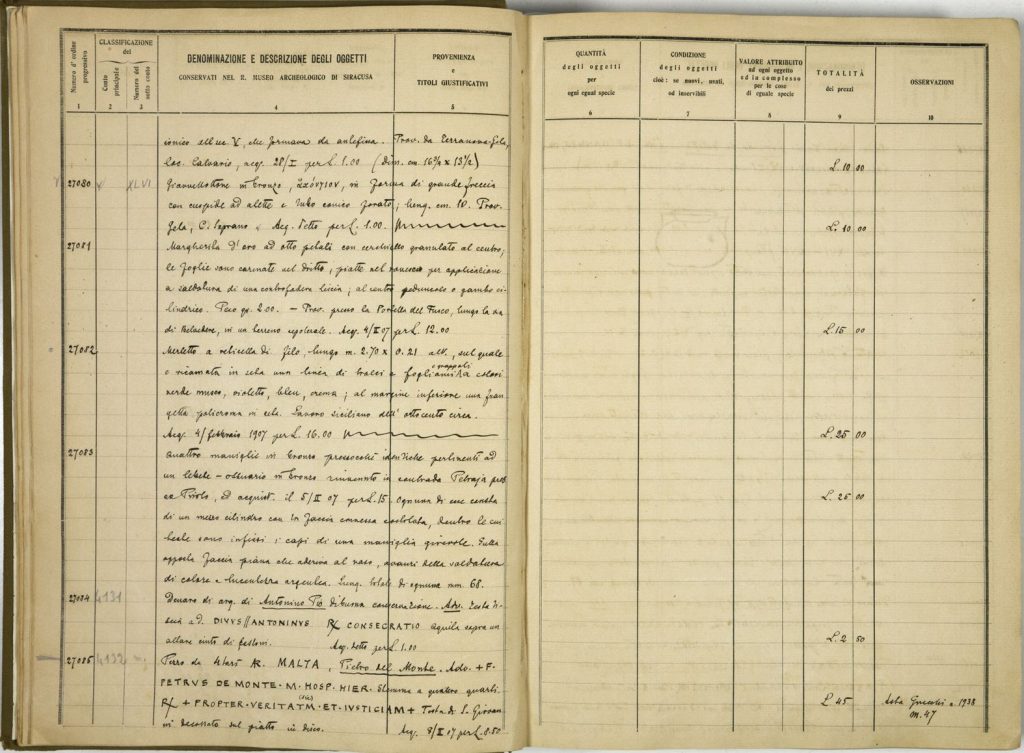 Numero d'ordine progressivo
CLASSIFICAZIONE del
Conto principale
Numero del sotto conto
DENOMINAZIONE E DESCRIZIONE DEGLI OGGETTI
CONSERVATI NEL R. MUSEO ARCHEOLOGICO DI SIRACUSA
PROVENIENZA
e
TITOLI GIUSTIFICATIVI
1 2 3 4 5
QUANTITÀ
degli oggetti
per
ogni egual specie
CONDIZIONE
degli oggetti
cioè: se nuovi, usati,
od inservibili
VALORE ATTRIBUITO
ad ogni oggetto
ed in complesso
per le cose
di eguale specie
TOTALITÀ
dei prezzi
OSSERVAZIONI
6 7 8 9 10
ionico del sec. V, che formava da antefissa. Prov. da Terranova-Gela,
loc. Calvario, acq. 28/I per L. 1.00 (dim. cm. 16½ x 13½) L. 10 00
27080 V XLVI in bronzo, in forma di grande freccia
con cuspide ad alette e tubo conico forato; lung. cm. 10. Prov.
Gela, C. Soprano. Acq. detto per L. 1.00. L. 10.00
27081 Margherita d'oro ad otto petali con cerchiello granulato al centro,
le foglie sono carinate nel dritto, piatte nel rovescio per applicazione
a saldatura di una controfodera liscia; al centro peduncolo o gambo ci-
lindrico. Peso gr. 2.00. – Prov. presso la Portella del Fusco, lungo la via
di Belvedere, in un terreno sepolcrale. Acq. 4/II 07 per L. 12.00 L. 15 00
27082 Merletto a reticella di filo, lungo m. 2.70 x 0.21 alt., sul quale
è ricamata in seta una linea di tralci e grappoli fogliami a colori
verde musco, violetto, bleu, crema; al margine inferiore una fran-
getta policroma in seta. Lavoro siciliano dell'ottocento circa.
Acq. 4/febbraio 1907 per L. 16.00 L. 25 00
27083 Quattro maniglie in bronzo pressochè identiche pertinenti ad
un lebete-ossuario in bronzo rinvenuto in contrada Petraja pres-
so ed acquist. il 5/II 07 per L. 15. Ognuna di esse consta L. 25 00
di un mezzo cilindro con la faccia convessa costolata, dentro le cui
sono infissi i capi di una maniglia girevole. Sulla
opposta faccia piana che aderiva al vaso, avanzi della saldatura
di colore e lucentezza argentea. Lung. totale di ognuna mm. 68.
27084 4131 Denaro di arg. di Antonino Pio di buona conservazione. Adv. Testa
a d. DIVVS//ANTONINVS R/ CONSECRATIO aquila sopra un
altare cinto di festoni. Acq. detto per L. 1.00 L. 2 50
27085 4132 Pezzo da 4 tarì AR. MALTA, Pietro del Monte. Adv. + F.
PETRVS DE MONTE · M · HOSP · HIER · Stemma a quattro quarti
R/ + PROPTER · VERITATM (sic) · ET · IVSTICIAM + Testa di S. Giovan-
ni decollato sul piatto in disco. Acq. 8/II 07 per L. 8.50
L. 45 Asta a. 1938
n. 47